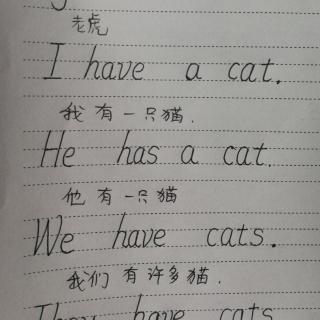 老虎
I have a cat.
我有一只猫.
He has a cat.
他有一只猫
We have cats.
我们有许多猫.
They have cats